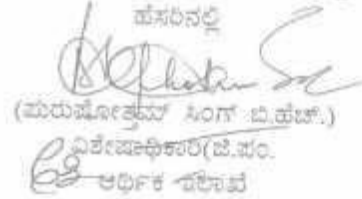 ಹೆಸರಿನಲ್ಲಿ
(ಪುರುಷೋತ್ತಮ್ ಸಿಂಗ್ ಬಿ.ಹೆಚ್.)
ವಿಶೇಷಾಧಿಕಾರಿ(ಜಿ.ಪಂ.
ಆರ್ಥಿಕ ಇಲಾಖೆ